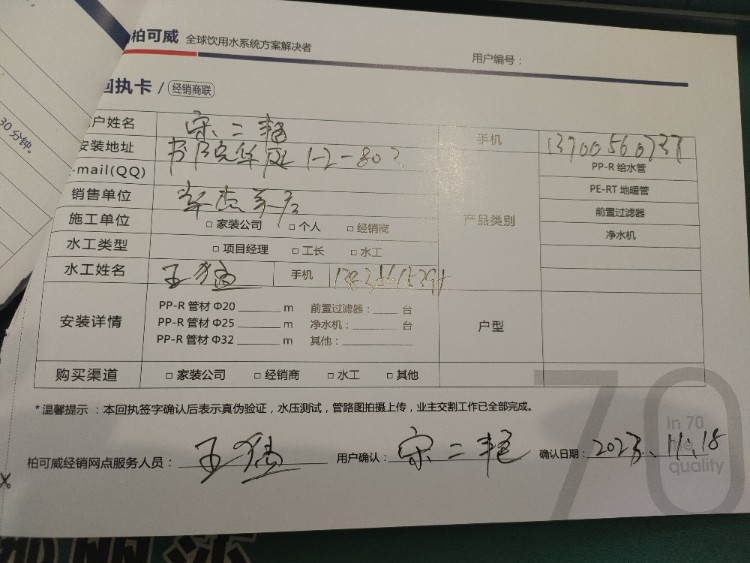 柏可威 全球饮用水系统方案解决者
用户编号：
回执卡 / 经销商联
30 分钟。
户姓名 宋二艳 手机 13700560737
安装地址 1-2-802
mail(QQ) 产品类别 PP-R 给水管
PE-RT 地暖管
销售单位 前置过滤器
施工单位 □ 家装公司 □ 个人 □ 经销商 净水机
水工类型 □ 项目经理 □ 工长 □ 水工
水工姓名 王猛 手机
安装详情 PP-R 管材 Φ20 ______ m 前置过滤器：____ 台 户型
PP-R 管材 Φ25 ______ m 净水机：____ 台
PP-R 管材 Φ32 ______ m 其他：________
购买渠道 □ 家装公司 □ 经销商 □ 水工 □ 其他
*温馨提示：本回执签字确认后表示真伪验证，水压测试，管路图拍摄上传，业主交割工作已全部完成。
70
In 70
quality
柏可威经销网点服务人员：王猛 用户确认：宋二艳 确认日期：2023.11.18